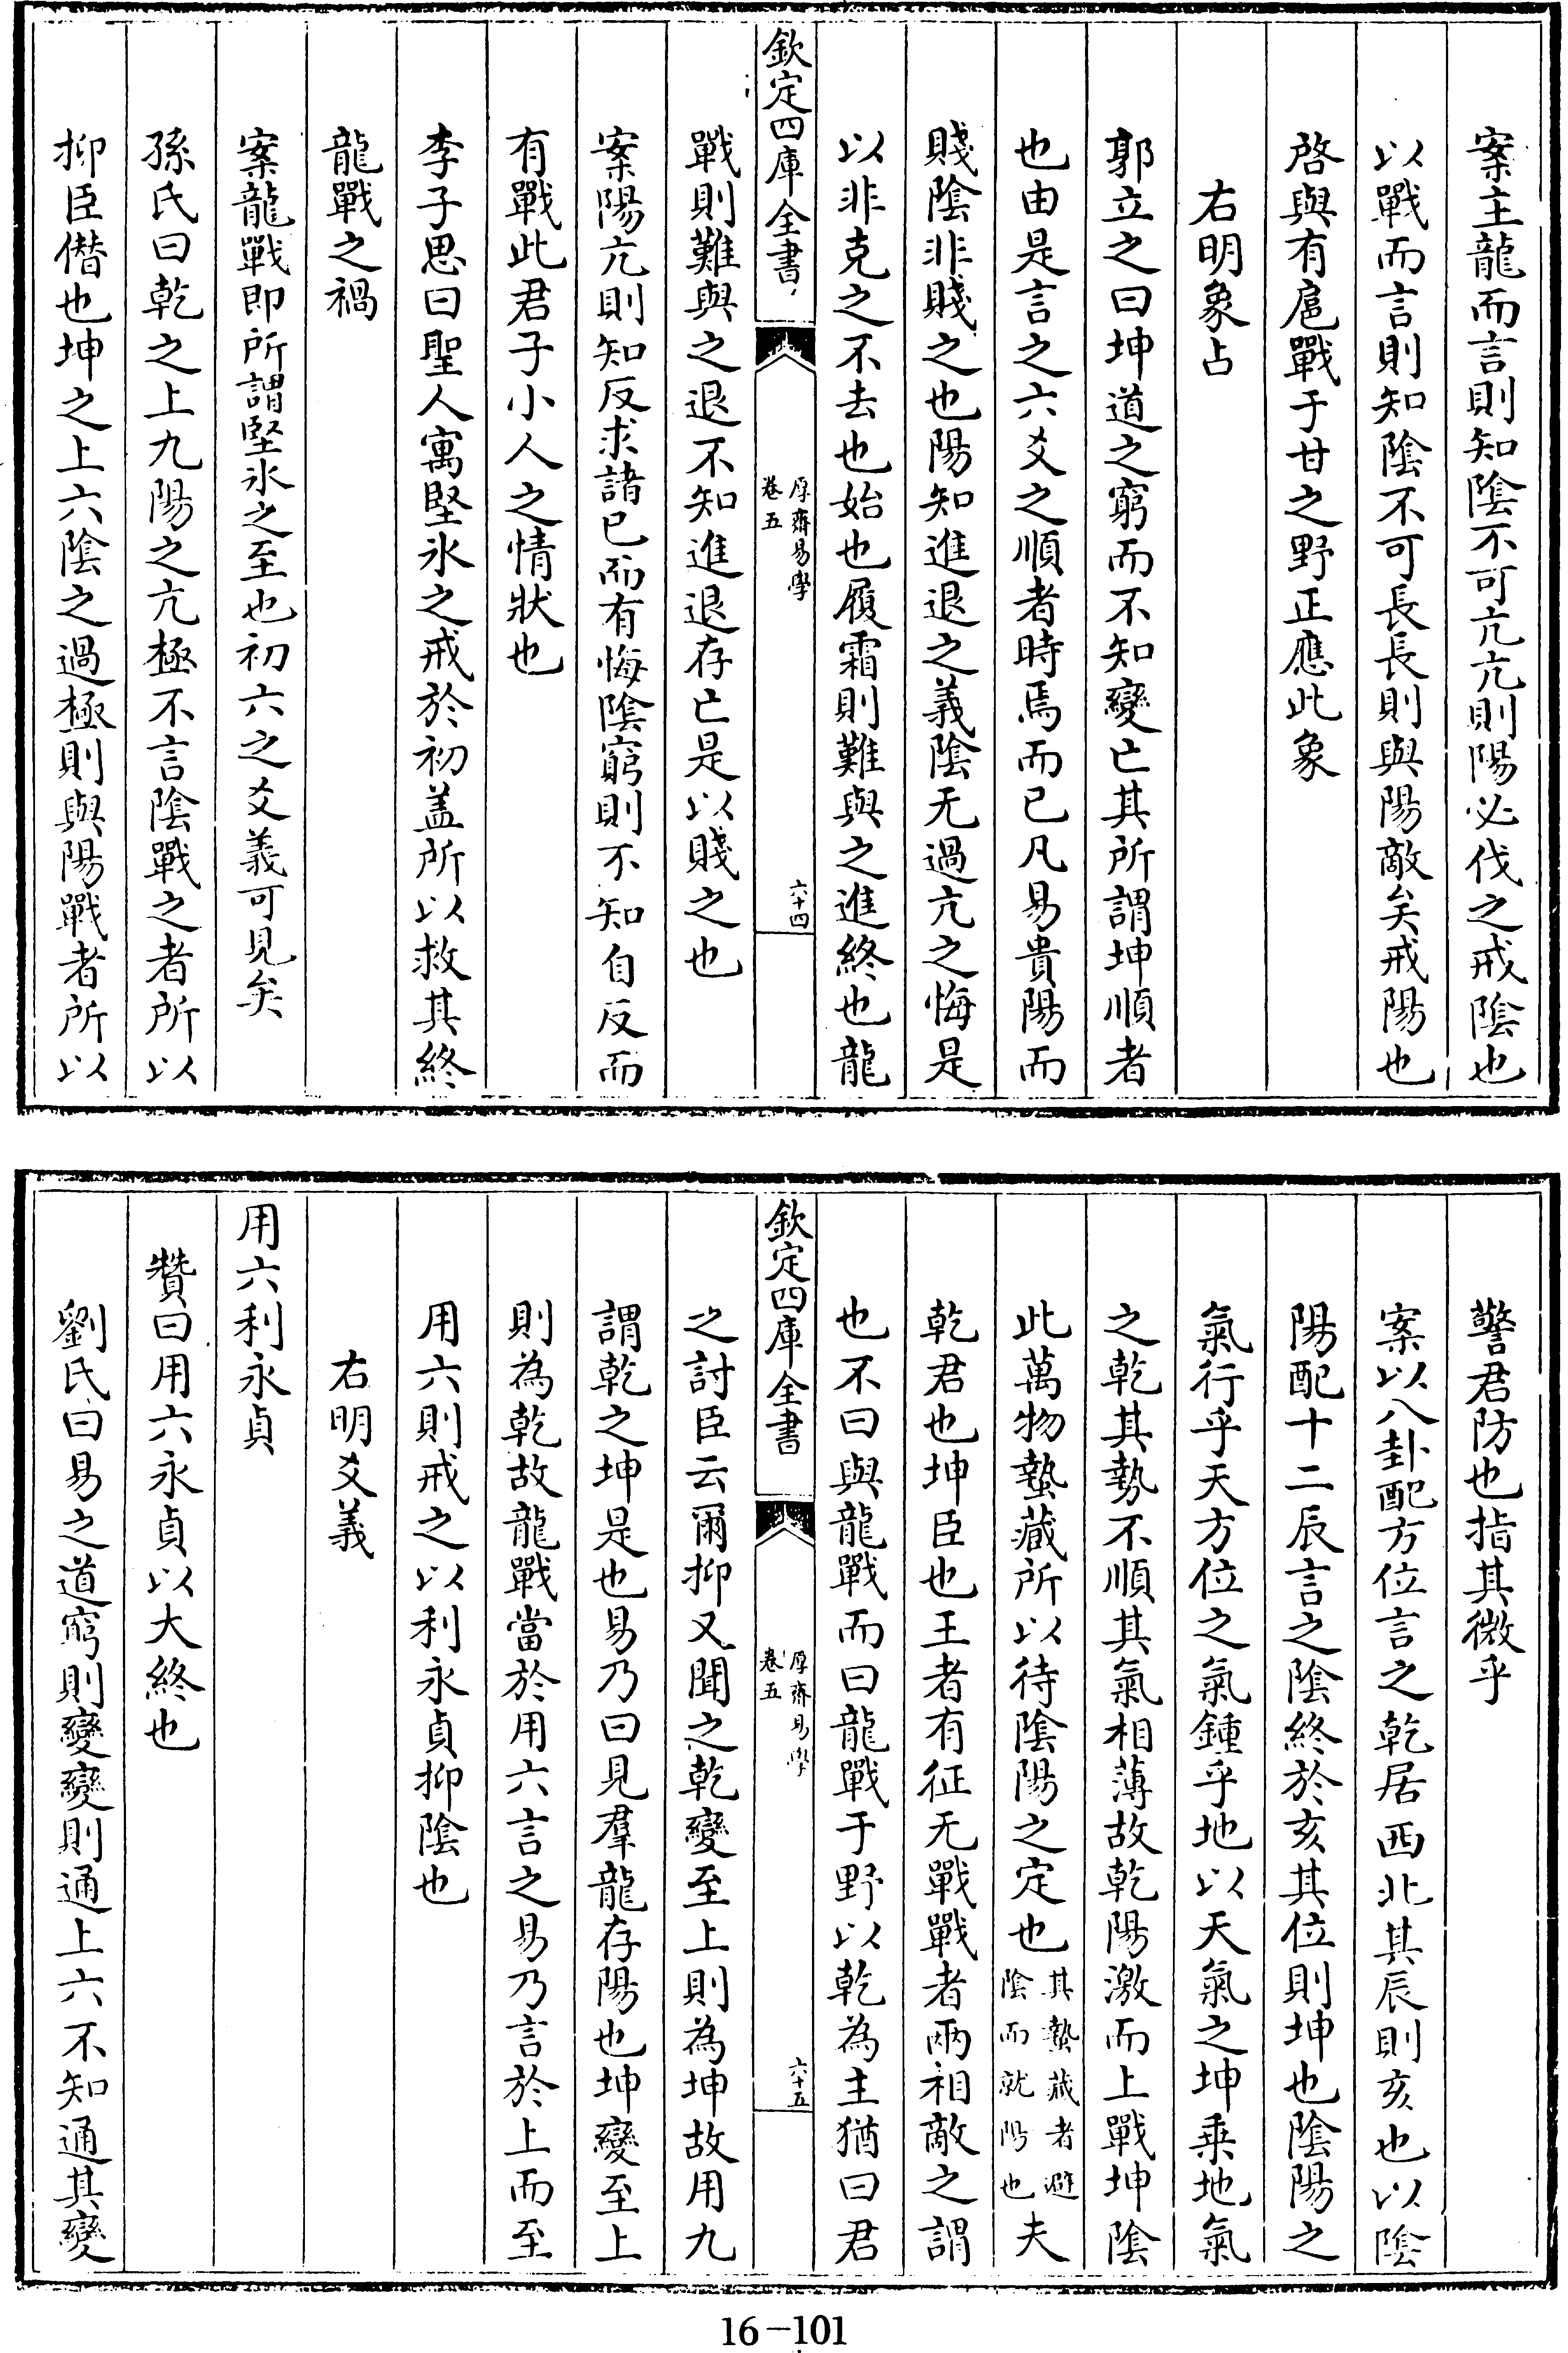 案主龍而言則知隂不可亢亢則陽必伐之戒隂也
以戰而言則知隂不可長長則與陽敵矣戒陽也
啓與有扈戰于甘之野正應此象
右明象占
郭立之曰坤道之窮而不知變亡其所謂坤順者
也由是言之六爻之順者時焉而已凡易貴陽而
賤隂非賤之也陽知進退之義隂无過亢之悔是
以非克之不去也始也履霜則難與之進終也龍
欽定四庫全書
厚齋易學
卷五
六十四
戰則難與之退不知進退存亡是以賤之也
案陽亢則知反求諸已而有悔隂窮則不知自反而
有戰此君子小人之情狀也
李子思曰聖人寓堅氷之戒於初盖所以救其終
龍戰之禍
案龍戰即所謂堅氷之至也初六之爻義可見矣
孫氏曰乾之上九陽之亢極不言隂戰之者所以
抑臣僭也坤之上六隂之過極則與陽戰者所以
警君防也指其微乎
案以八卦配方位言之乾居西北其辰則亥也以隂
陽配十二辰言之隂終於亥其位則坤也隂陽之
氣行乎天方位之氣鍾乎地以天氣之坤乗地氣
之乾其勢不順其氣相薄故乾陽激而上戰坤隂
此萬物蟄藏所以待隂陽之定也其蟄藏者避隂而就陽也夫
乾君也坤臣也王者有征无戰戰者兩相敵之謂
也不曰與龍戰而曰龍戰于野以乾為主猶曰君
欽定四庫全書
厚齋易學
卷五
六十五
之討臣云爾抑又聞之乾變至上則為坤故用九
謂乾之坤是也易乃曰見羣龍存陽也坤變至上
則為乾故龍戰當於用六言之易乃言於上而至
用六則戒之以利永貞抑隂也
右明爻義
用六利永貞
贊曰用六永貞以大終也
劉氏曰易之道窮則變變則通上六不知通其變
16-101